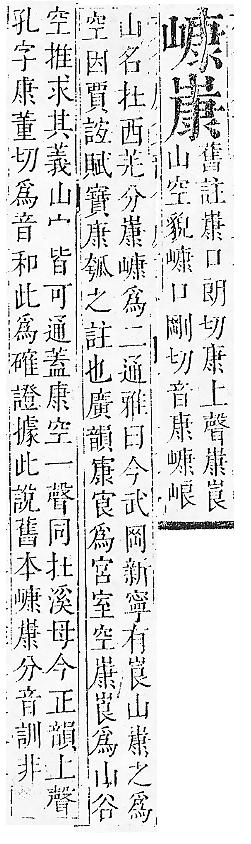 嵻𡻚
舊註𡻚口朗切康上聲𡻚崀
山空貌嵻口剛切音康嵻崀
山名在西羌分𡻚嵻爲二通雅曰今武岡新寧有崀山𡻚之爲
空因賈誼賦寶康瓠之註也廣韻㝩㝗爲宮室空𡻚崀爲山谷
空推求其義山宀皆可通蓋康空一聲同在溪母今正韻上聲
孔字康董切爲音和此爲確證據此說舊本嵻𡻚分音訓非